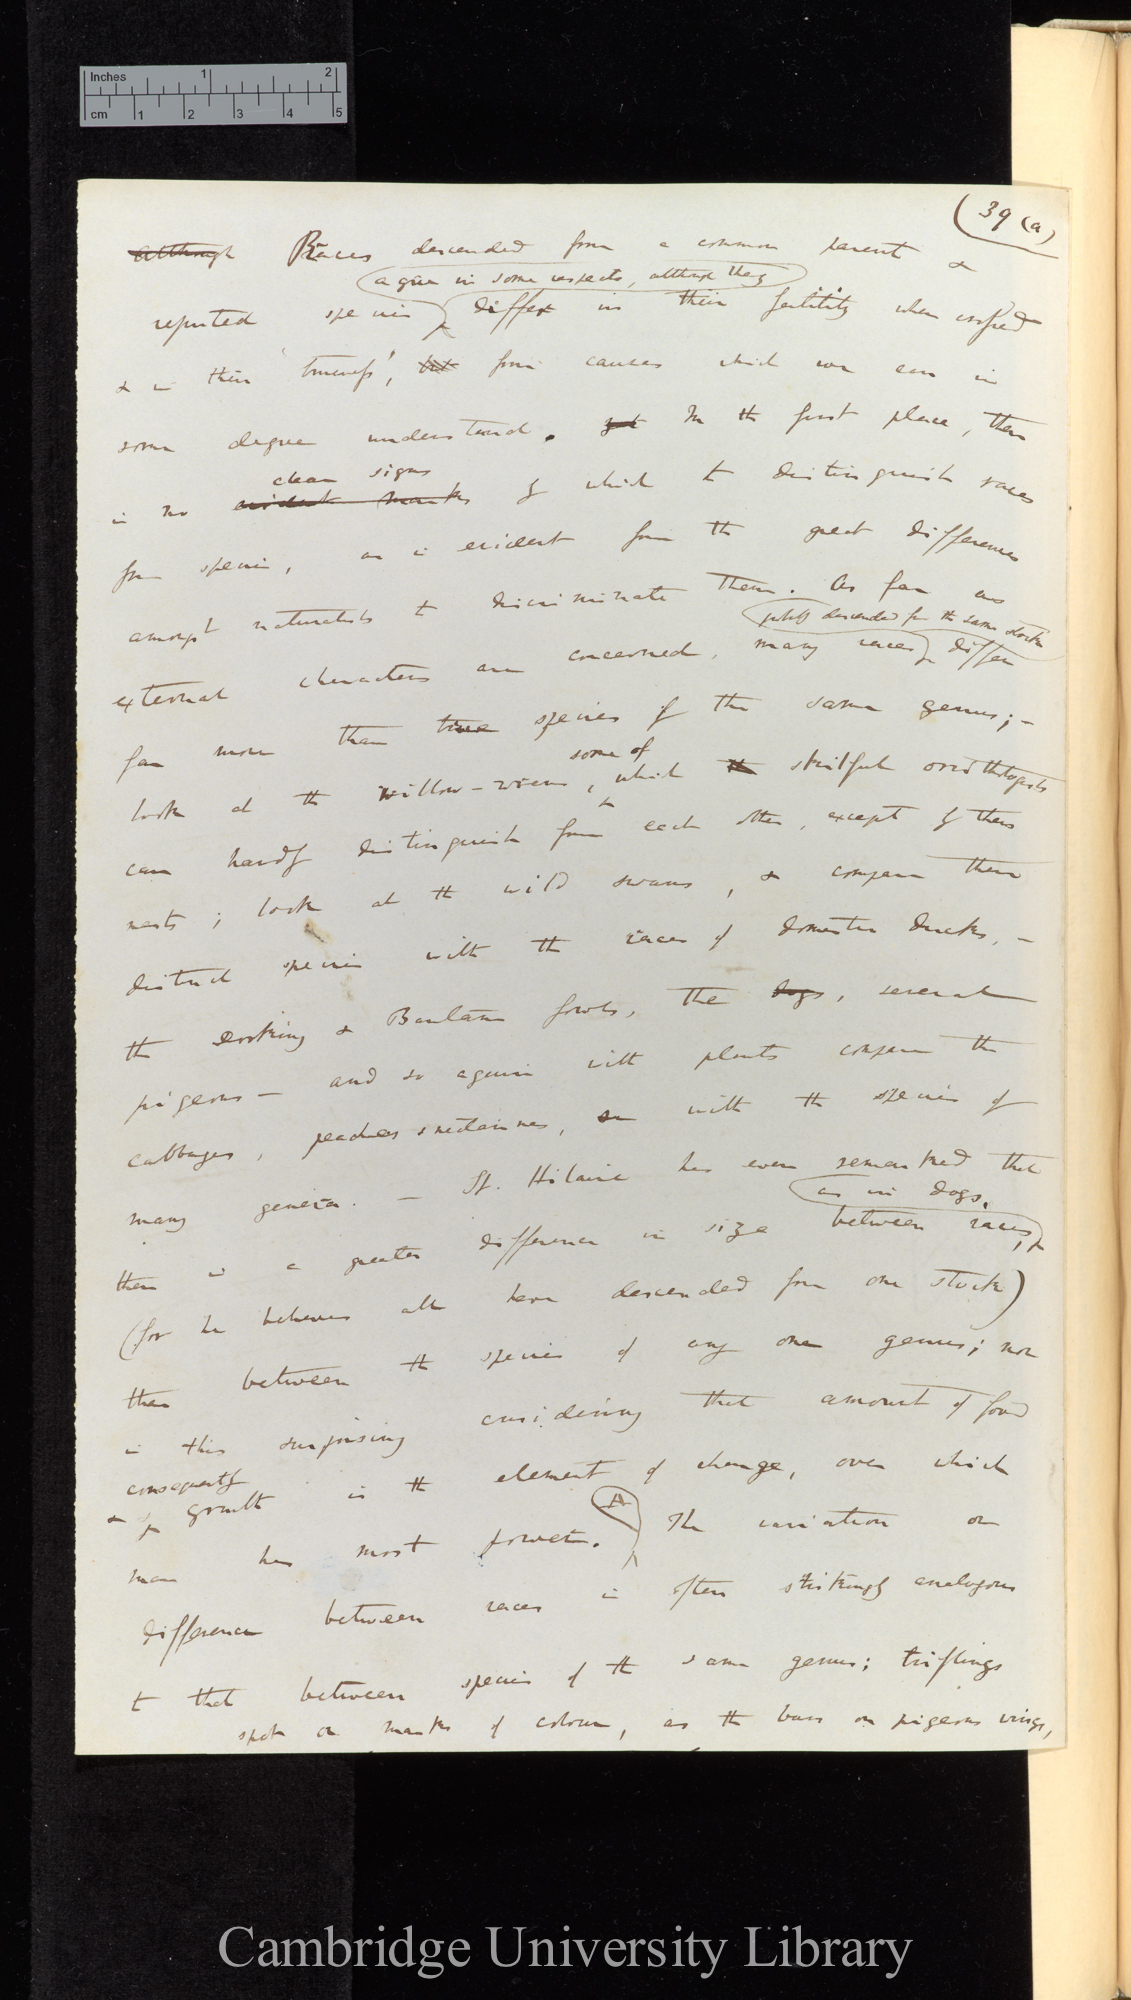 Inches 1 2
cm 1 2 3 4 5
39 (a)
although Races descended from a common parent &
agree in some respects, although they
reputed species differ in their fertility when crossed
& in their 'trueness', but from causes which we can in
some degree understand. yet In the first place, there
clear signs
is no evident marks by which to distinguish races
from species, as is evident from the great differences
amongst naturalists to discriminate them. As far as
descended from the same stock
external characters are concerned, many races differ
far more than true species of the same genus; –
some of
look at the willow-wrens, which the skilful ornithologists
can hardly distinguish from each other, except by their
nests; look at the wild swans, & compare these
distinct species with the races of domestic ducks, –
the Dorking & Bantam fowls, the dogs, several
pigeons – and so again with plants compare the
cabbages, peaches & nectarines, with the species of
many genera. – St. Hilaire has even remarked that
as in dogs,
there is a greater difference in size between races,
(for he believes all have descended from one stock)
than between the species of any one genus; nor
is this surprising considering that amount of food
consequently
& growth is the element of change, over which
man has most power. A The variation or
difference between races is often strikingly analogous
to that between species of the same genus; triflings
spot or marks of colour, as the bars on pigeons wings,
Cambridge University Library